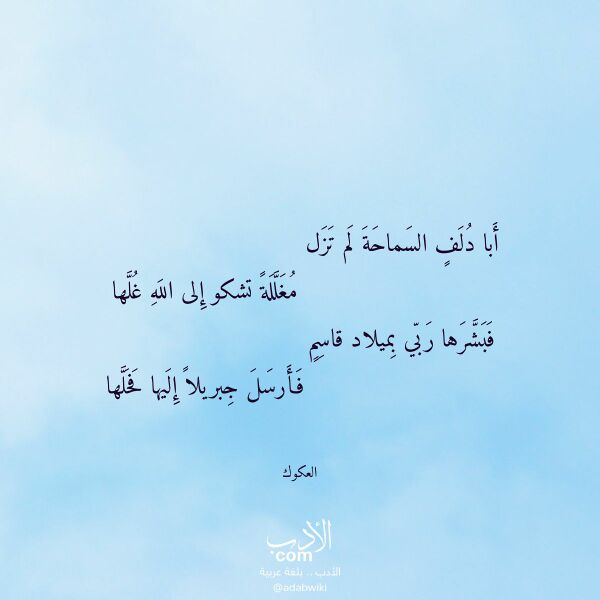 أَبا دُلَفٍ السَماحَةَ لَم تَزَل
مُغَلَّلَةً تشكو إِلى اللَهِ غُلَّها
فَبَشَّرَها رَبّي بِميلاد قاسِمٍ
فَأَرسَلَ جِبريلاً إِلَيها فَحَلَّها
العكوك
الأدب
com
الأدب .. بلغة عربية
@adabwiki